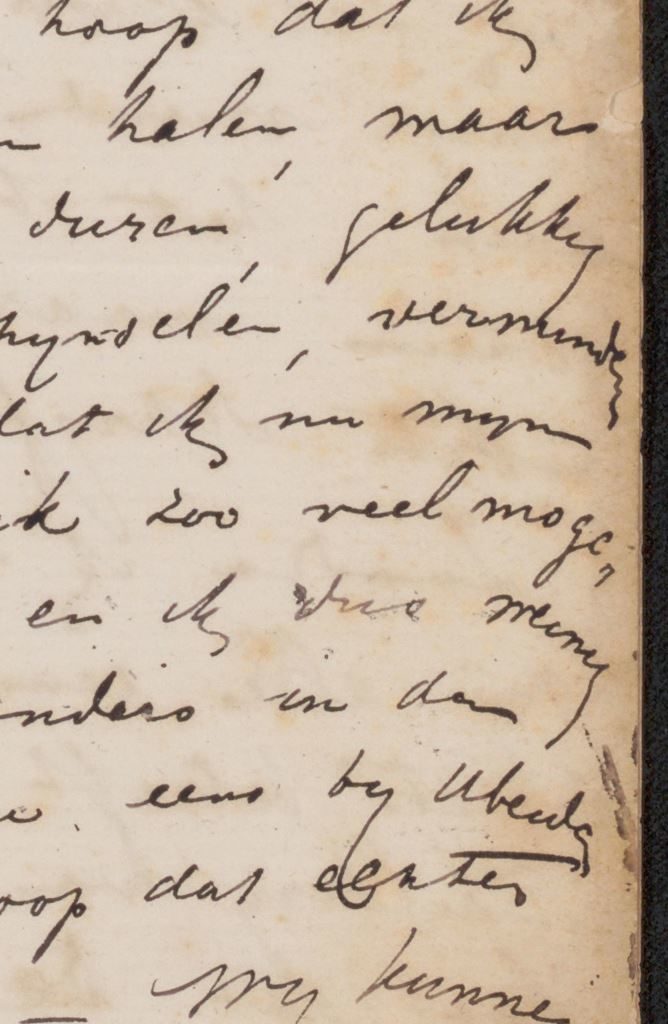 hoop dat ik
n halen, maar
duren, gelukkig
hynselen, verminder
dat ik nu mijn
ik zoo veel moge-
en ik dus weinig
anders in den
eens by
oop dat echter
Wy kunne